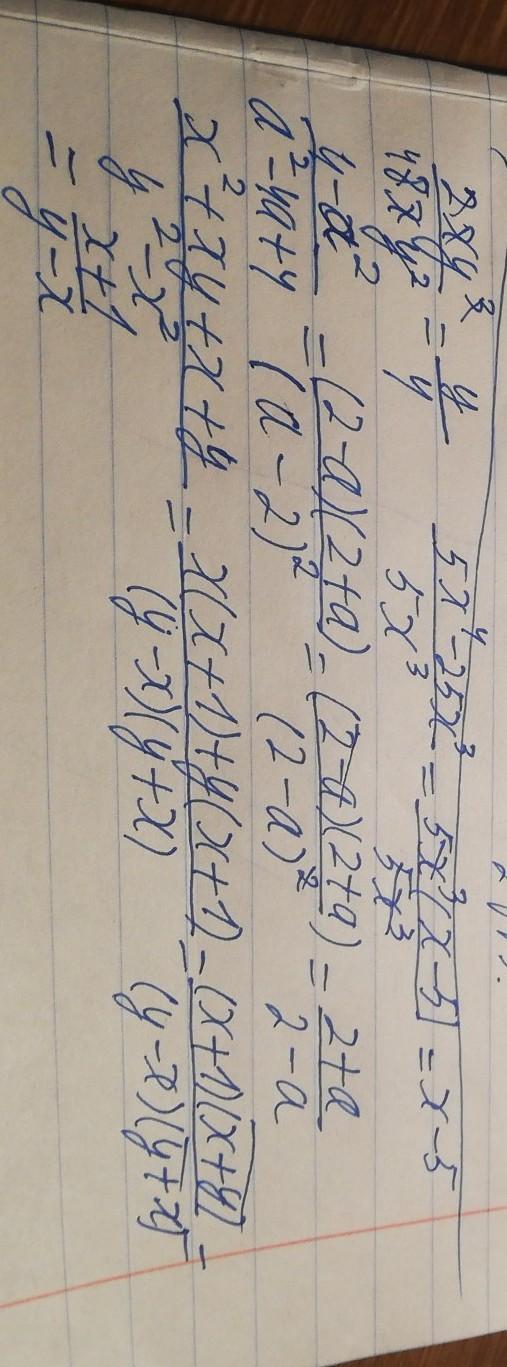 \frac{2xy^3}{48xy^2} = \frac{y}{4}   \frac{5x^4-25x^3}{5x^3} = \frac{5x^3(x-5)}{5x^3} = x-5
\frac{4-a^2}{a^2-4a+4} = \frac{(2-a)(2+a)}{(a-2)^2} = \frac{(2-a)(2+a)}{(2-a)^2} = \frac{2+a}{2-a}
\frac{x^2+xy+x+y}{y^2-x^2} = \frac{x(x+1)+y(x+1)}{(y-x)(y+x)} = \frac{(x+1)(x+y)}{(y-x)(y+x)} =
= \frac{x+1}{y-x}